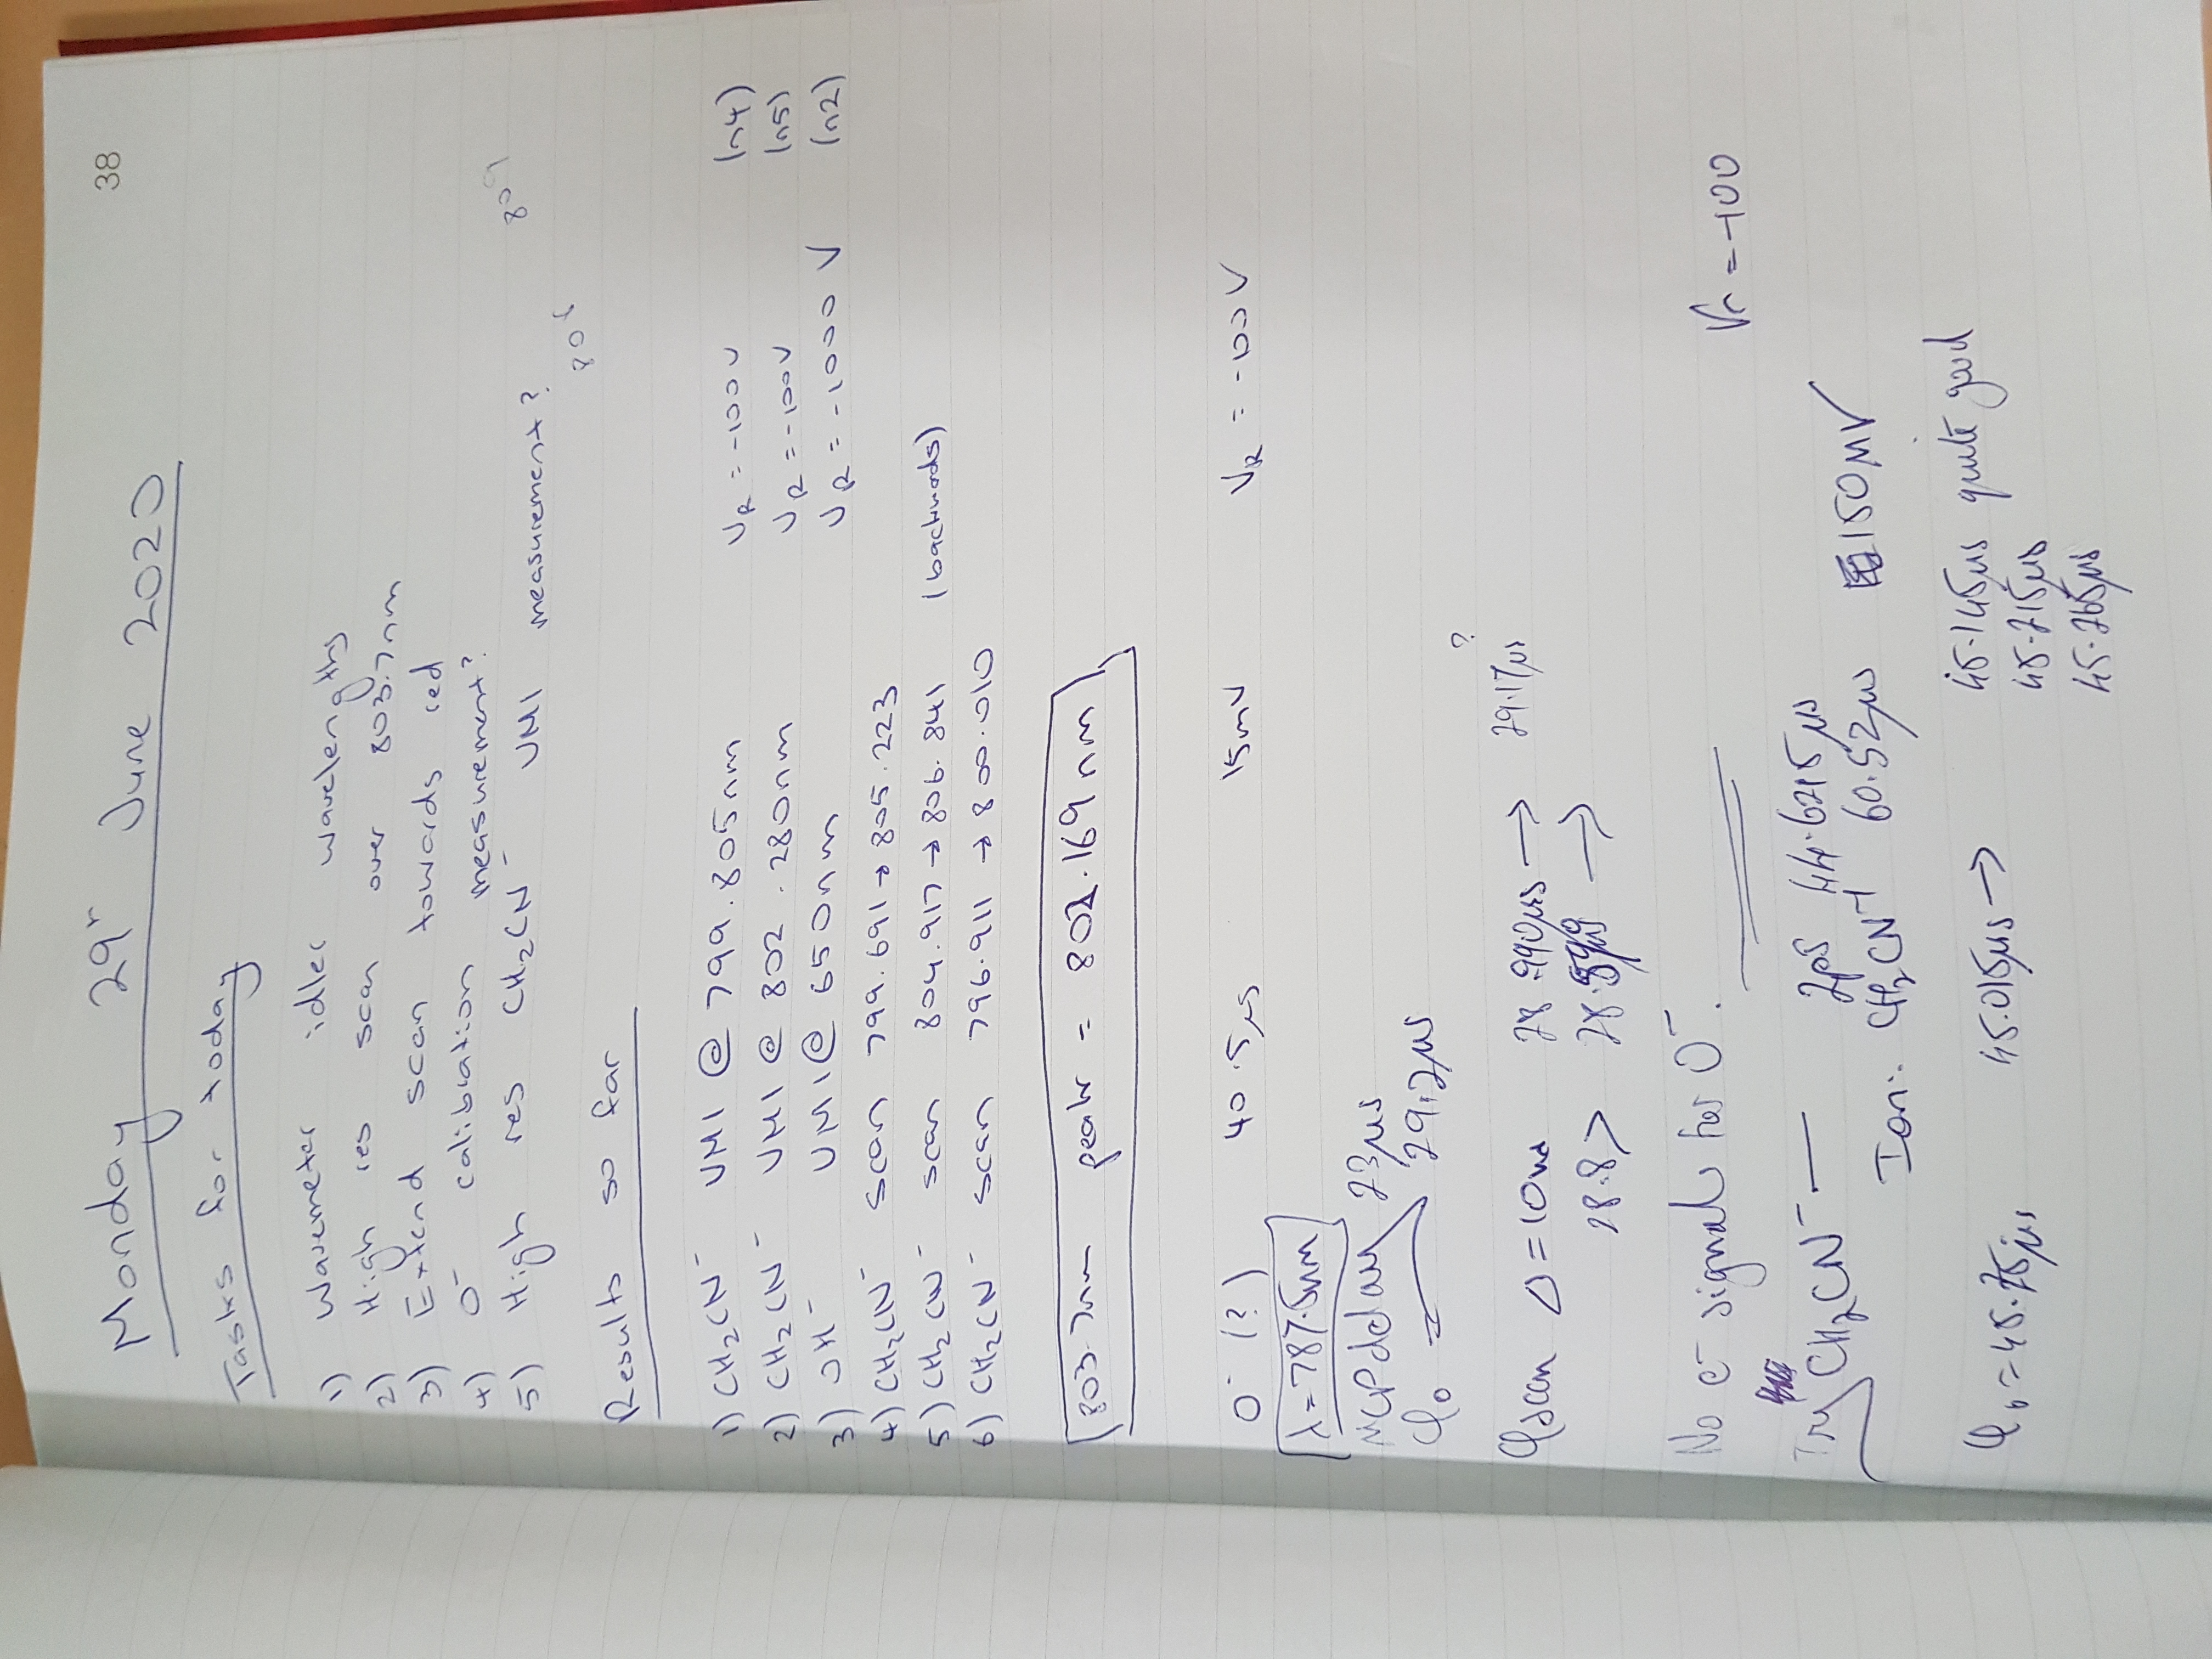 38
Monday 29th June 2020
Tasks for today
1) Wavemeter idler wavelengths
2) High res scan over 803.7nm
3) Extend scan towards red
4) O⁻ calibration measurement?
5) High res CH₂CN⁻ VMI measurement?
809
806
Results so far
1) CH₂CN⁻ VMI @ 799.805nm V_R = -100V (n4)
2) CH₂CN⁻ VMI @ 802.280nm V_R = -100V (n5)
3) OH⁻ VMI @ 650nm V_R = -1000 V (n2)
4) CH₂CN⁻ scan 799.691 → 805.223
5) CH₂CN⁻ scan 804.917 → 806.841 (backwards)
6) CH₂CN⁻ scan 796.911 → 800.010
803.7nm peak = 802.169nm
O⁻ (?) 40.5μs 15mV V_R = -100V
λ = 787.5nm
MCP delay 23μs
φ₀ = 29.2μs
?
φscan Δ = 10ns 28.990μs → 29.17μs
28.8 > →
No e⁻ signal for O⁻.
Vr = -100
Try CH₂CN⁻ — 2ps 44.6215μs
Ion: CH₂CN⁻ 60.52μs 150mV
φ₀ = 45.25μs 45.015μs → 45.145μs quite good
45.215μs
45.265μs